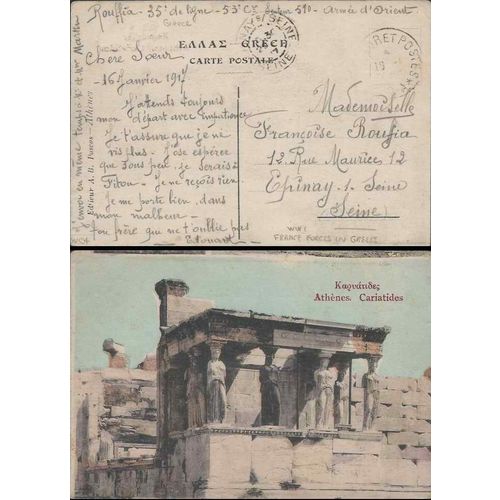 Rouffia - 35e de ligne - 53e Cie Secteur 510 - Armée d'Orient
Greece
ΕΛΛΑΣ GRÈCE
CARTE POSTALE
Chère Soeur
16 Janvier 1917
J'attends toujours
mon départ avec impatience
Je t'assure que je ne
vis plus. J'ose espérer
que sous peu, je serais
Je ne reçois rien.
Je me porte bien, dans
mon malheur.
Ton frère qui ne t'oublie pas
Edouard
Editeur A. B. Pascas - Athènes
J'envoi en même temps à
EPINAY S/ SEINE
SEINE
Mademoiselle
Françoise Rouffia
12, Rue Maurice, 12
Epinay. s. Seine
Seine
WW1
FRANCE FORCES IN GREECE
Καρυάτιδες
Athènes. Cariatides